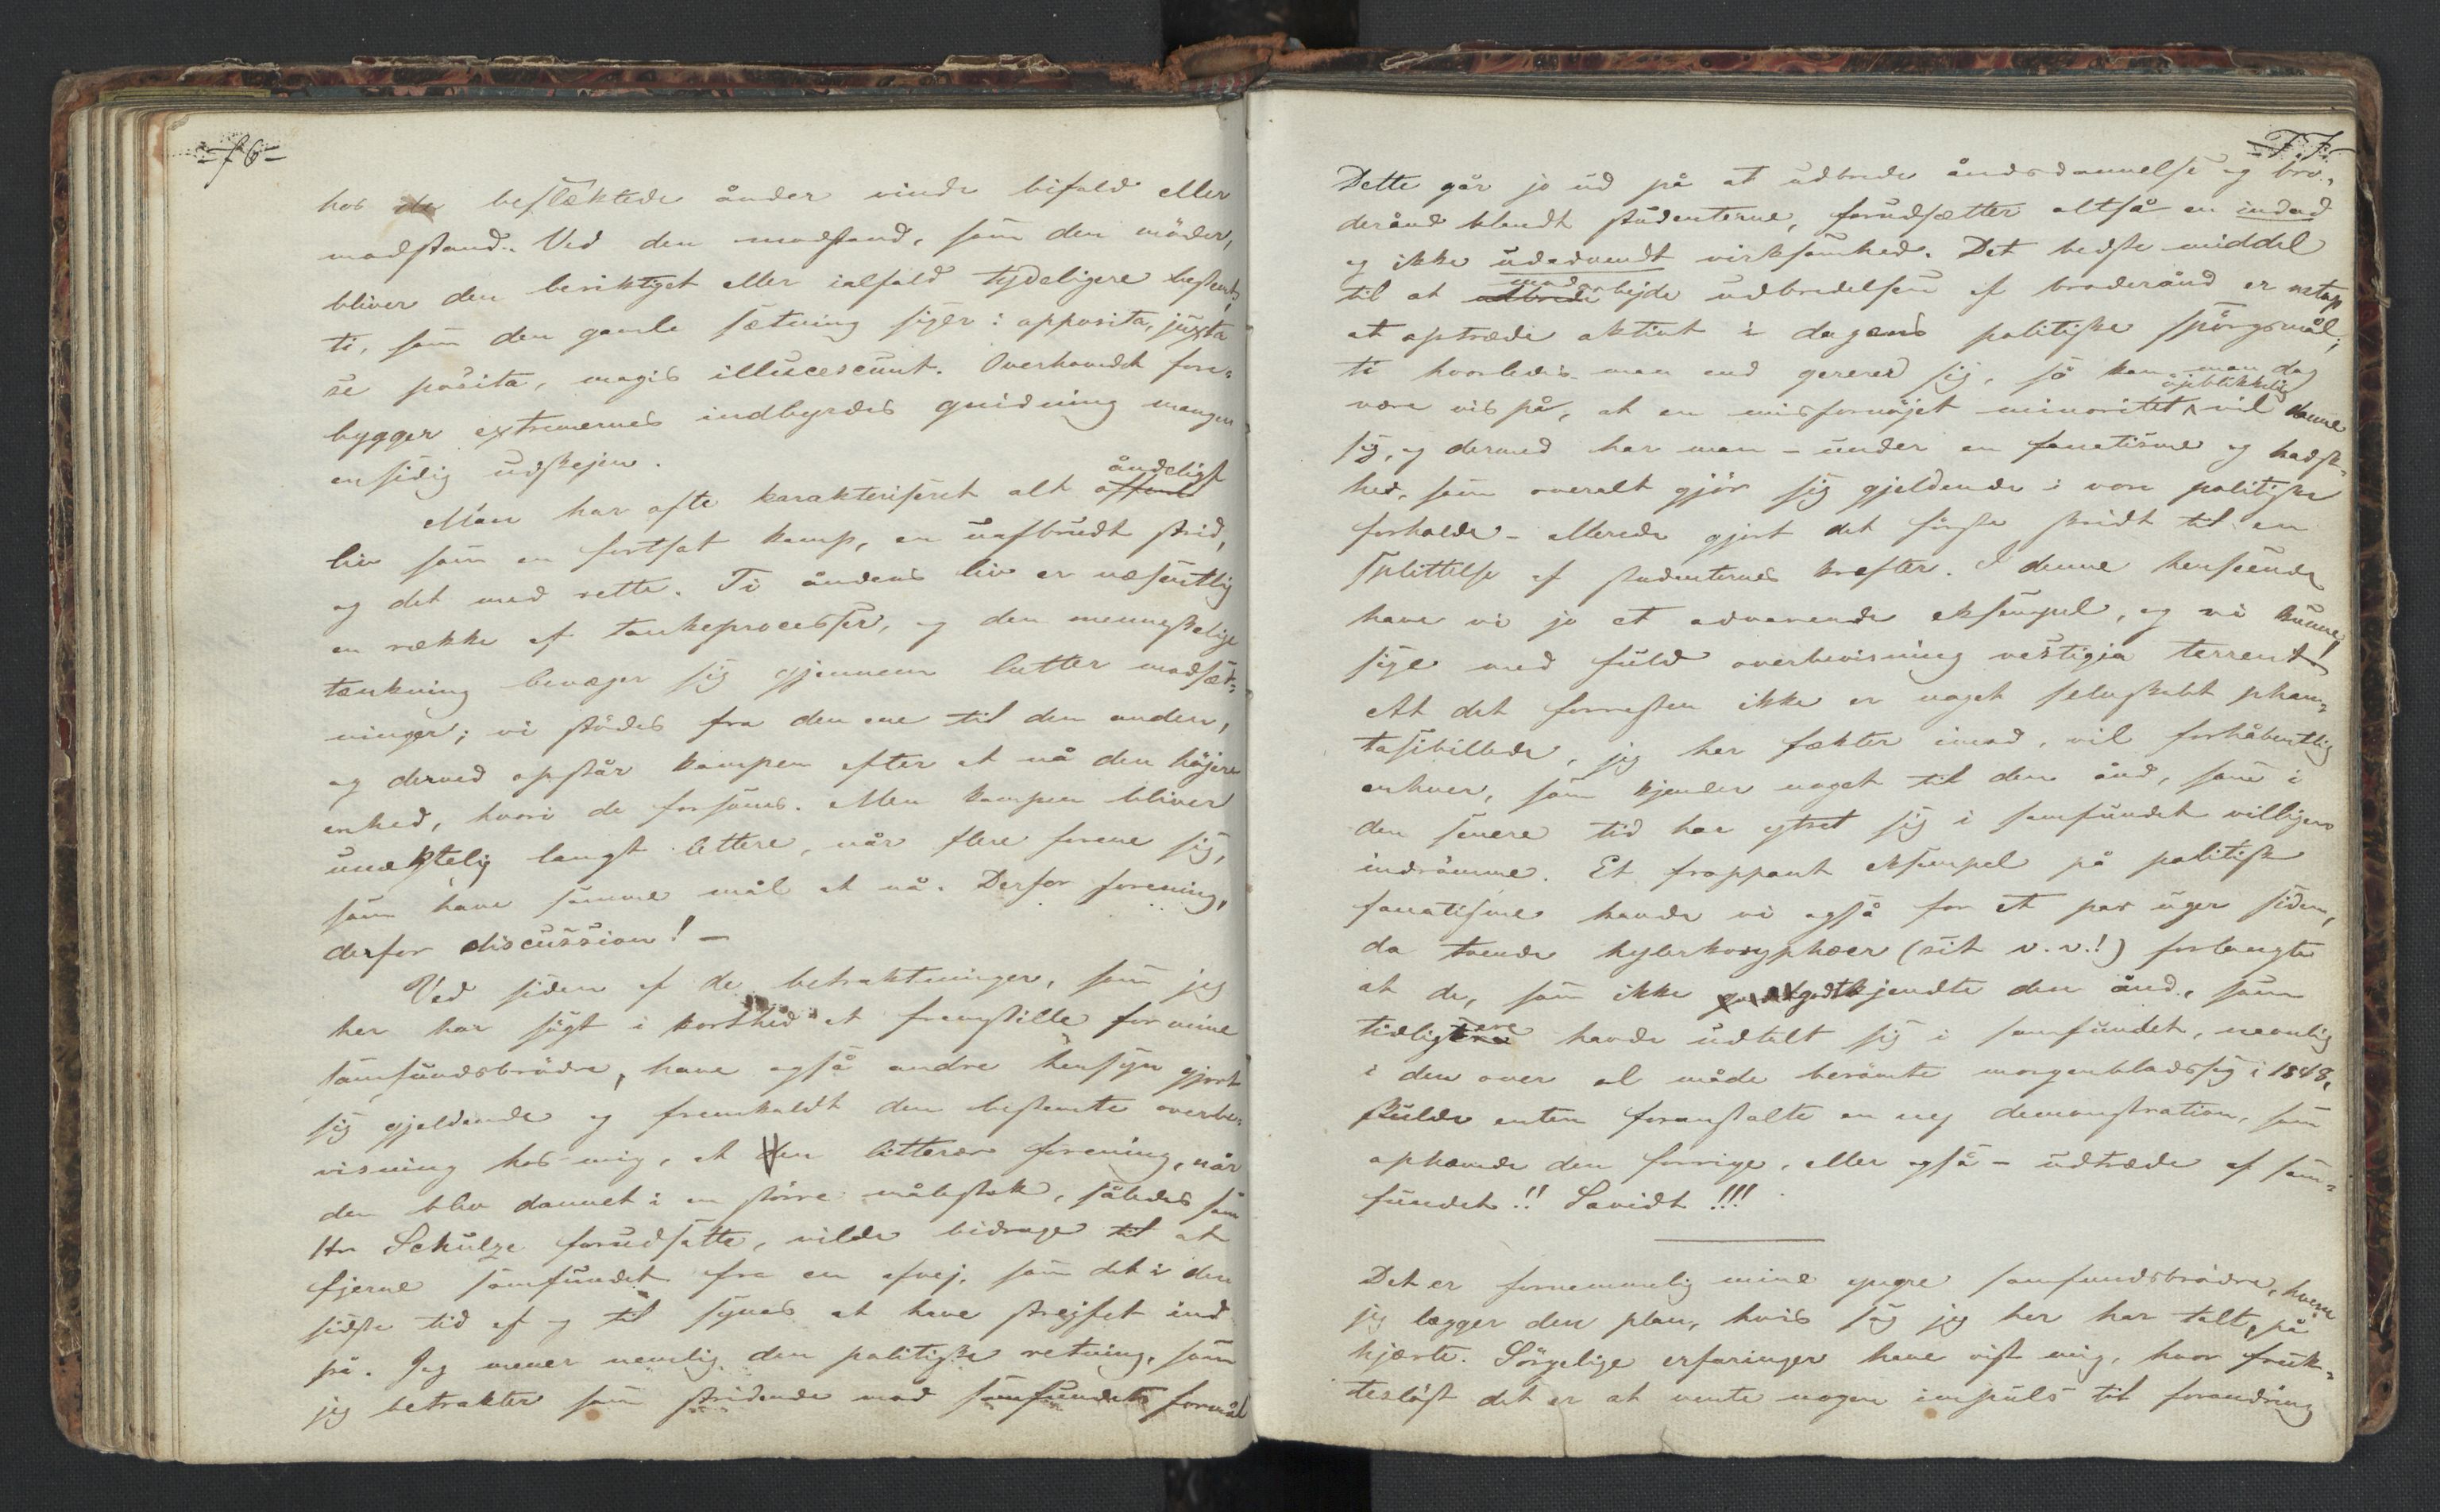 -76-
hos de beslæktede ånder vinde bifald eller
modstand. Ved den modstand, som den möder,
bliver den beriktiget eller ialfald tydeligere bestemt,
ti, som den gamle sætning siger: opposita, juxta
se posita, magis illucescunt. Overhovedet fore-
bygger extremernes indbyrdes gnidning mangen
ensidig udskejen.
Man har ofte karakteriseret alt åndeligt
liv som en fortsat kamp, en uafbrudt strid,
og det med rette. Ti åndens liv er væsentlig
en række af tankeprocesser, og den menneskelige
tænkning bevæger sig gjennem lutter modsæt-
ninger; vi stödes fra den ene til den anden,
og derved opstår kampen efter at nå den höjere
enhed, hvori de forsones. Men kampen bliver
unæktelig langt lettere, når flere forene sig,
som have samme mål at nå. Derfor forening,
derfor discussion! –
Ved siden af de betraktninger, som jeg
her har sögt i korthed at fremstille for mine
samfundsbrödre, have også andre hensyn gjort
sig gjeldende og fremkaldt den bestemte overbe-
visning hos mig, at den litterær forening, når
den blev dannet i en större målestok, således som
Hr Schulze forudsatte, vilde bidrage til at
fjerne samfundet fra en afvej, som det i den
sidste tid af og til synes at have strejfet ind
på. Jeg mener nemlig den politiske retning, som
jeg betrakter som stridende mod samfundets formål
77.
Dette går jo ud på at udbrede åndsdannelse og bro-
derånd blandt studenterne, forudsætter altså en indad
og ikke udadvendt virksomhed. Det bedste middel
til at modarbejde udbredelsen af broderånd er netop
at optræde aktivt i dagens politiske spörgsmål;
ti hvorledes man end gererer sig, så kan man dog
være vis på, at en misfornöjet minoritet öjeblikkelig vil danne
sig, og dermed har man – under en fanatisme og hadsk-
hed, som overalt gjör sig gjeldende i vore politiske
forholde – allerede gjort det förste skridt til en
splittelse af studenternes kræfter. I denne henseende
have vi jo et advarende eksempel, og vi kunne
sige med fuld overbevisning vestigia terrent!
At det forresten ikke er noget selvskabt phan-
tasibillede, jeg her fækter imod, vil forhåbentlig
enhver, som kjender noget til den ånd, som i
den senere tid har ytret sig i samfundet villigen
indrömme. Et frappant eksempel på politisk
fanatisme havde vi også for et par uger siden,
da tvende hylerkoryphæer (sit v. v.!) forlangte
at de, som ikke godtkjendte den ånd, som
tidligere havde udtalt sig i samfundet, nemlig
i den over al måde berömte morgenbladssag i 1848,
skulde enten foranstalte en ny demonstration, som
ophævede den forrige, eller også – udtræde af sam-
fundet!! Savidt!!!
Det er fornemmelig mine yngre samfundsbrödre, hvem
jeg lægger den plan, hvis sag jeg her har talt, på
hjærte. Sörgelige erfaringer have vist mig, hvor fruk-
teslöst det er at vente nogen impuls til forandring